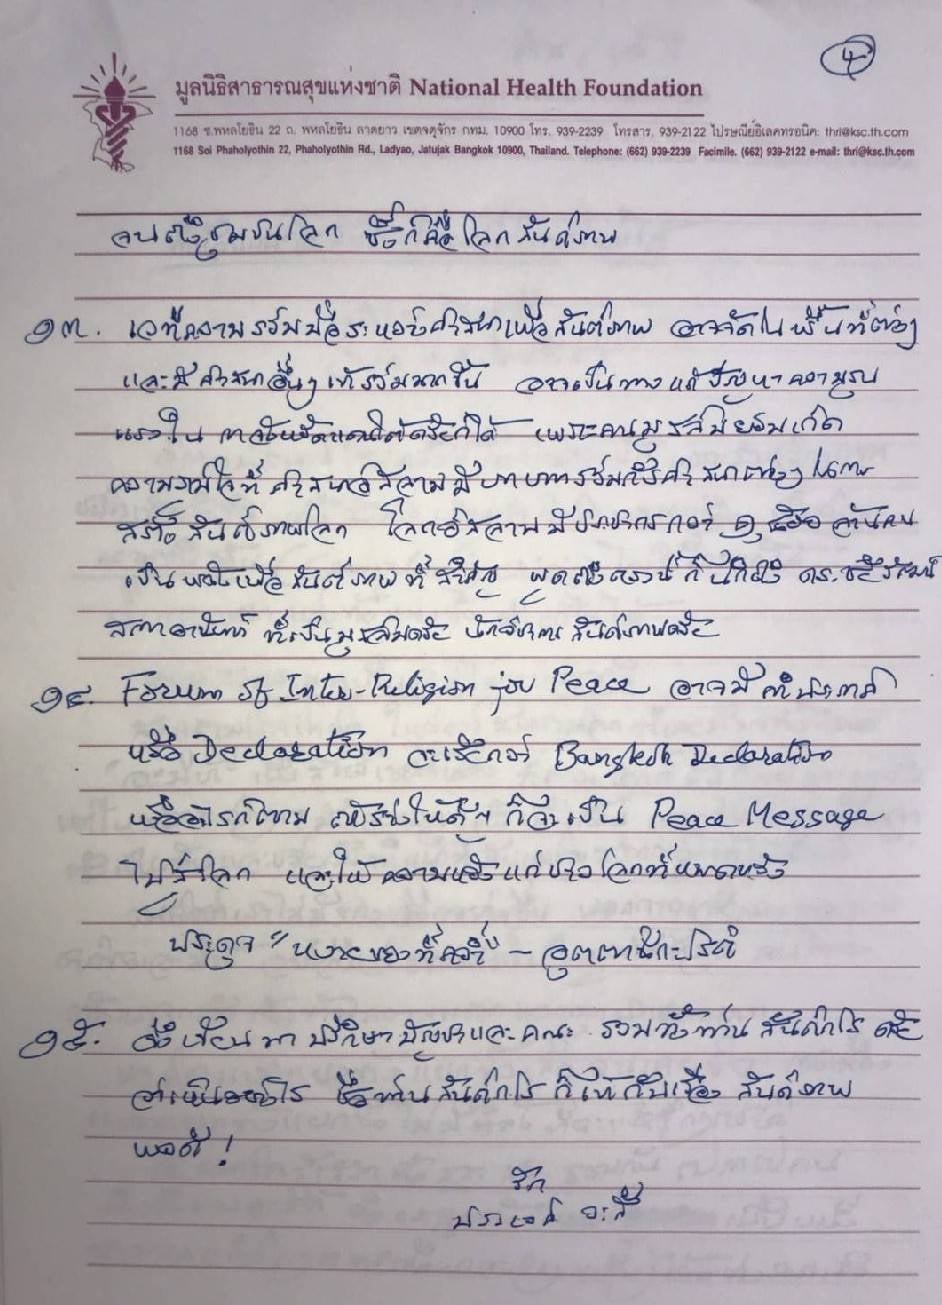 4
มูลนิธิสาธารณสุขแห่งชาติ National Health Foundation
1168 ซ.พหลโยธิน 22 ถ. พหลโยธิน ลาดยาว เขตจตุจักร กทม. 10900 โทร. 939-2239 โทรสาร. 939-2122 ไปรษณีย์อิเลคทรอนิค: thri@ksc.th.com
1168 Soi Phaholyothin 22, Phaholyothin Rd., Ladyao, Jatujak Bangkok 10900, Thailand. Telephone: (662) 939-2239 Facimile. (662) 939-2122 e-mail: thri@ksc.th.com
จนถึงชุมชนโลก ซึ่งก็คือโลกสันติภาพ
๑๓. เวทีความร่วมมือระหว่างศาสนาเพื่อสันติภาพ อาจจัดในพื้นที่ต่างๆ
และมีศาสนาอื่นๆเข้าร่วมมากขึ้น อาจเป็นทางแก้ปัญหาความรุน
แรงใน ได้ เพราะคนมุสลิมย่อมเกิด
ความภูมิใจที่ศาสนาอิสลามมีบทบาทร่วมกับศาสนาต่างๆในการ
สร้างสันติภาพโลก โลกอิสลามมีประชากรกว่า ๑,๕๐๐ ล้านคน
เป็นพลังเพื่อสันติภาพที่สำคัญ พูดถึงตรงนี้ก็นึกถึง ดร.ชัยวัฒน์
สถาอานันท์ ที่เป็นมุสลิมด้วย นักวิชาการสันติภาพด้วย
๑๔. Forum of Inter-Religion for Peace อาจมีคำประกาศ
หรือ Declaration จะเรียกว่า Bangkok Declaration
หรืออะไรก็ตาม ถ้าร่างให้ดีๆ ก็จะเป็น Peace Message
ไปสู่โลก และให้ความหวังแก่ชาวโลกที่หมดหวัง
ประดุจ "หงายของที่คว่ำ"
๑๕. จึงเรียนมา ปรึกษา และคณะ รวมทั้งท่านสันติกโร ด้วย
ว่าเห็นอย่างไร ชื่อท่านสันติกโร ก็เข้ากับเรื่อง สันติภาพ
พอดี !
รัก
ประเวศ วะสี